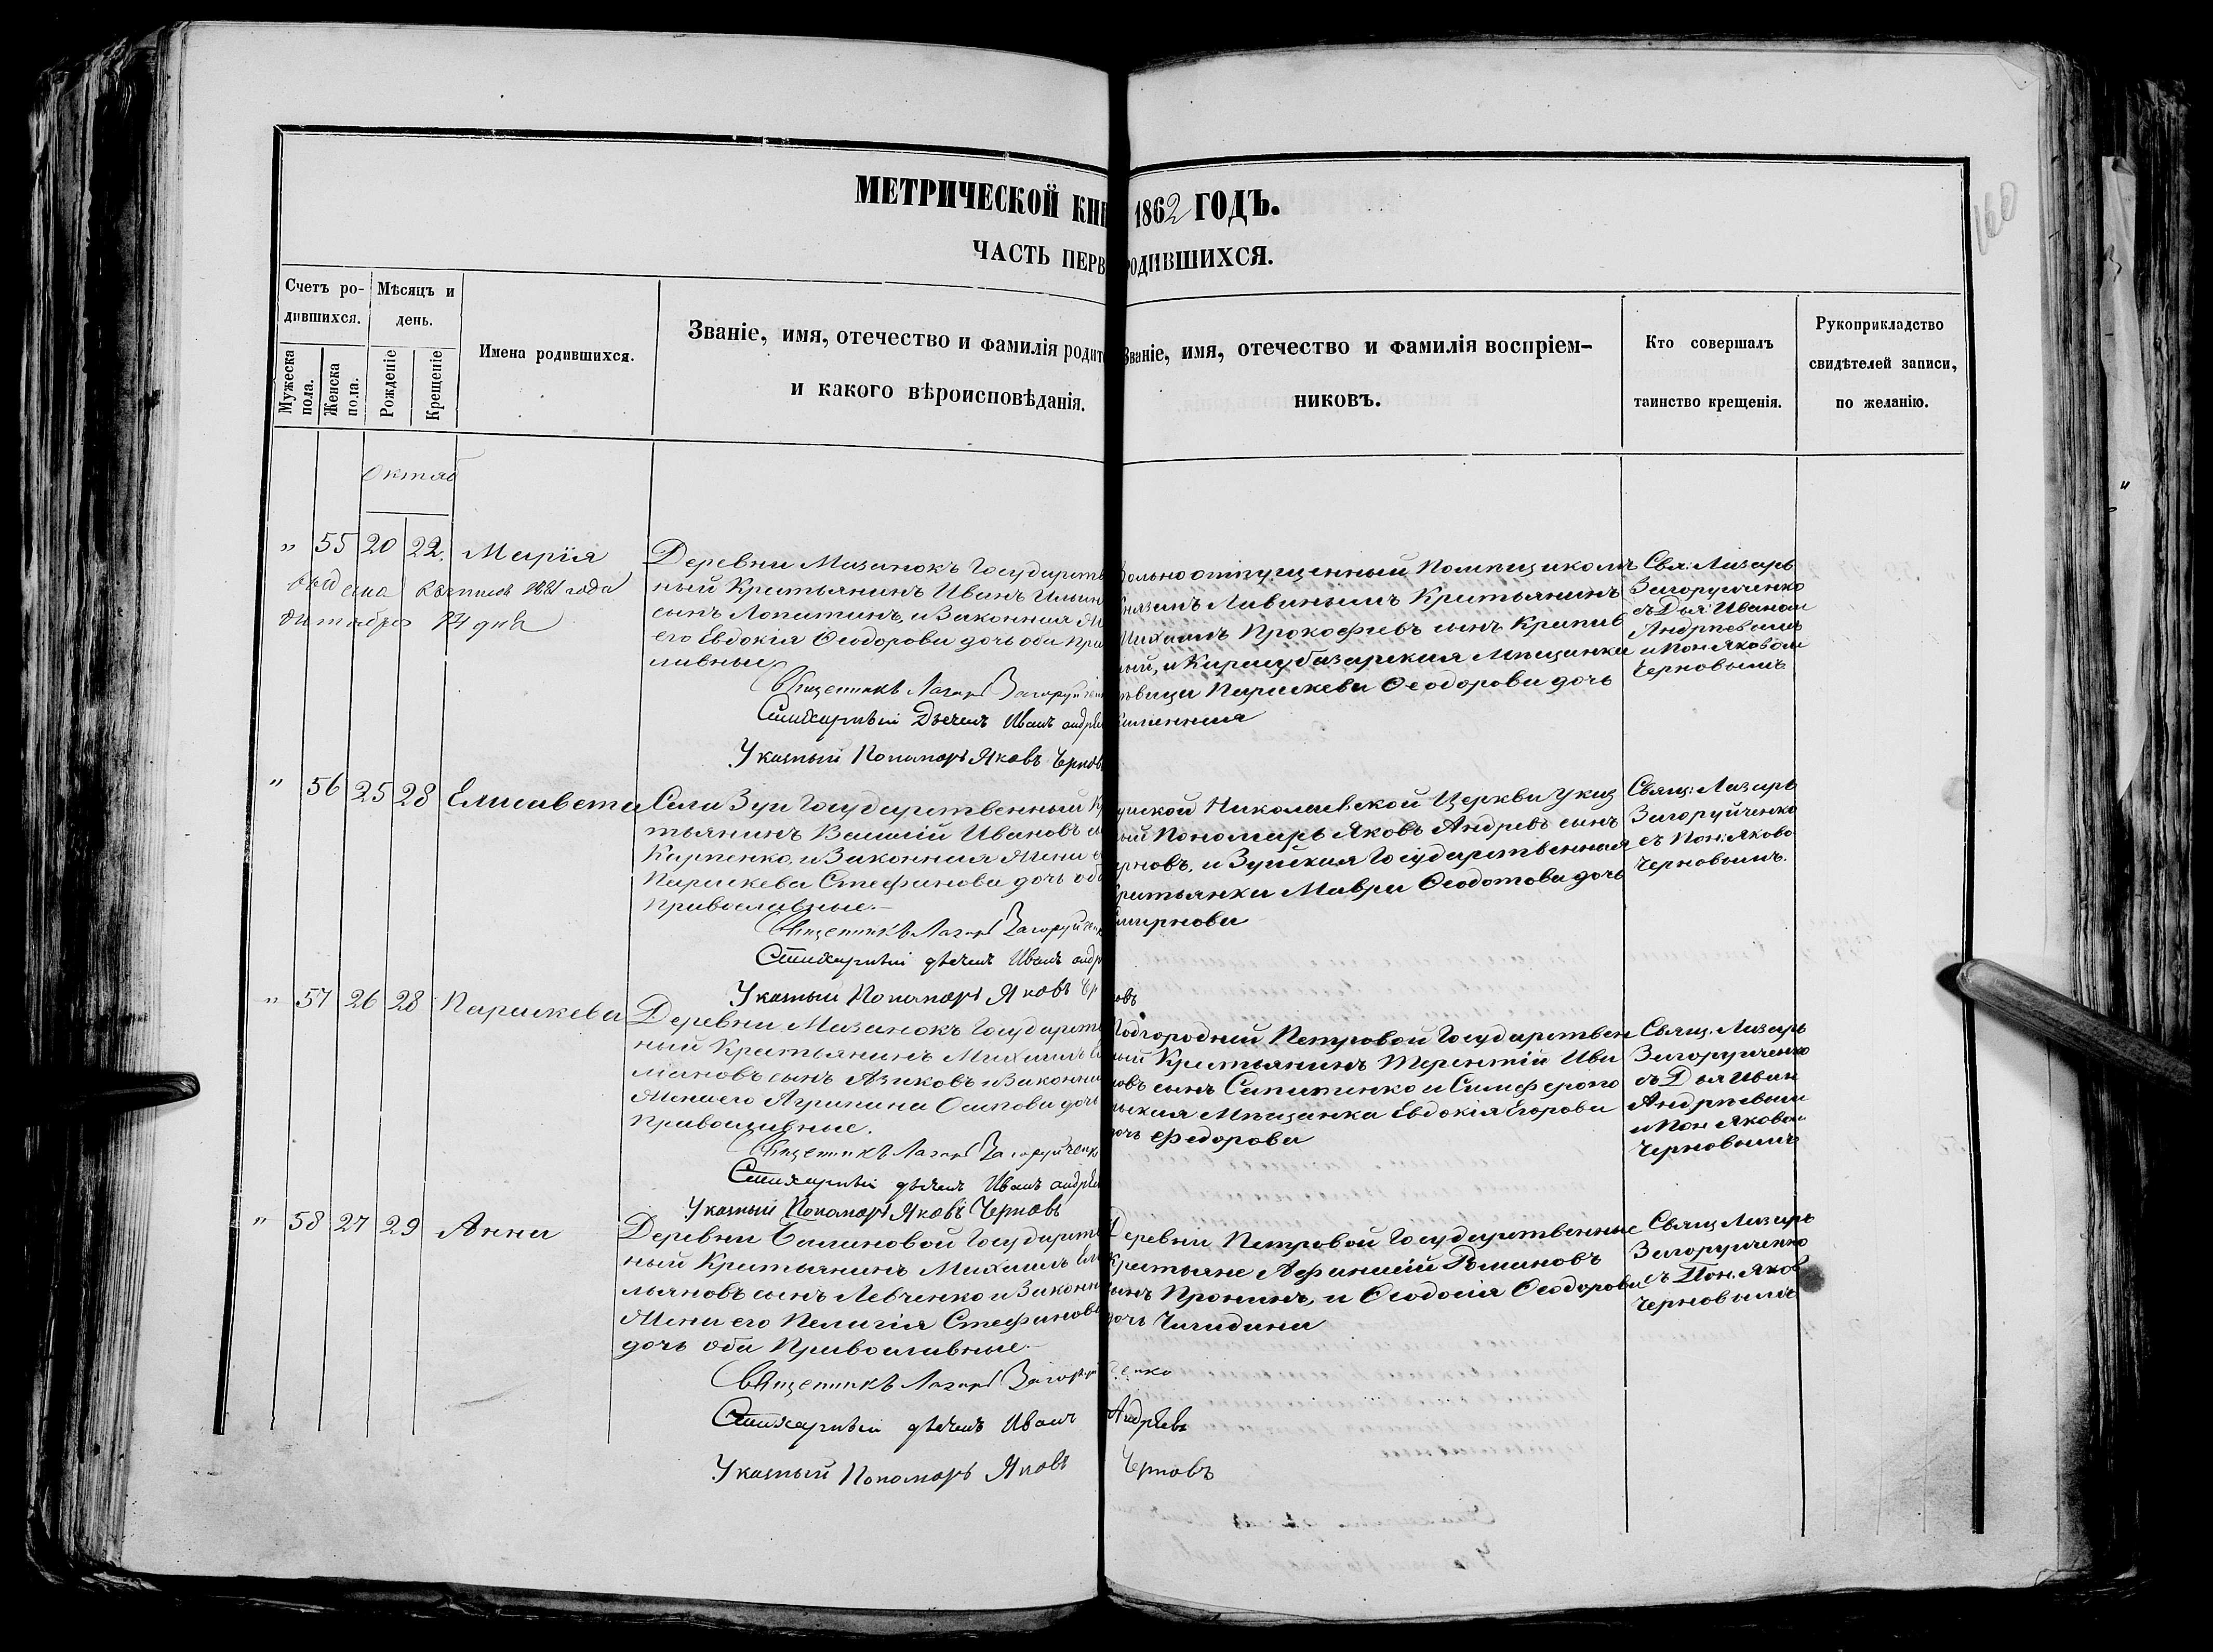 МЕТРИЧЕСКОЙ КНИ 1862 ГОДЪ.
ЧАСТЬ ПЕРВ РОДИВШИХСЯ.
160
Счетъ ро-
дившихся.
Мужеска
пола.
Женска
пола.
Мѣсяцъ и
день.
Рожденіе
Крещеніе
Имена родившихся.
Званіе, имя, отечество и фамилія родите
и какого вѣроисповѣданія.
Званіе, имя, отечество и фамилія воспріем-
никовъ.
Кто совершалъ
таинство крещенія.
Рукоприкладство
свидѣтелей записи,
по желанію.
Октяб
" 55 20 22. Марія
1881 года
октября 24 дня
Деревни Мазанокъ Государств
ный Крестьянинъ Иванъ Ильин
сынъ Лопатинъ, и Законная Ж
его Евдокія Ѳеодорова дочь оба пра
лавные,
Священникъ Лазарь Загоруйченк
Стихарный Дьячекъ Иванъ андре
Указный Пономарь Яковъ Чернов
вольно отпущенный Помѣщикомъ
Княземъ Ливинымъ Крестьянинъ
Михаилъ Прокофьевъ сынъ Крапив
ный, и Карасубазарская Мѣщанка
дѣвица Параскева Ѳеодорова дочь
Свя: Лазарь
Загоруйченко
съ Дья: Иваном
Андреевымъ
и Пон Яковом
Черновымъ
" 56 25 28 Елисавета
Села Зуи Государственный К
тьянинъ Василій Ивановъ с
Карпенко, и Законная Жена е
Параскева Стефанова дочь об
православные.—
Священникъ Лазарь Загоруйченк
Стихарный дьячекъ Иванъ анд
Указный Пономарь Яковъ Чр
новъ
уйской Николаевской Церкви Указ
ный Пономарь Яковъ Андревъ сынъ
Черновъ, и Зуйская Государственная
Крестьянка Мавра Ѳеодотова дочь
Смирнова
Свящ: Лазарь
Загоруйченко
съ Пон: Яково
Черновымъ.
" 57 26 28 Параскева
Деревни Мазанокъ Государств
ный Крестьянинъ Михаилъ Е
ліановъ сынъ Азаковъ и Законна
Жена его Агрипина Осипова дочь
Православные.
Священникъ Лазарь Загоруйченк
Стихарный дьячекъ Иванъ андре
Указный Пономарь Яковъ Черновъ
Подгородней Петровой Государствен
ный Крестьянинъ Терентій Ива
новъ сынъ Сапитенко и Симферопо
льская Мѣщанка Евдокія Егорова
дочь Федорова
Свящ. Лазарь
Загоруйченко
съ Дья Иван
Андреевым
и Пон Яковом
Черновымъ
" 58 27 29 Анна
Деревни Балановой Государств
ный Крестьянинъ Михаилъ Еме
льяновъ сынъ Левченко и Законн
Жена его Пелагія Стефанова
дочь оба Православные.—
Священникъ Лазарь Загоруй ченко
Стихарный дьячекъ Иванъ Андреевъ
Указный Пономарь Яковъ Черновъ
Деревни Петровой Государственные
Крестьяне Афанасій Романовъ
сынъ Пронинъ, и Ѳеодосія Ѳеодорова
дочь Чагадина
Свящ Лазарь
Загоруйченко
съ Пон. Яков
Черновымъ